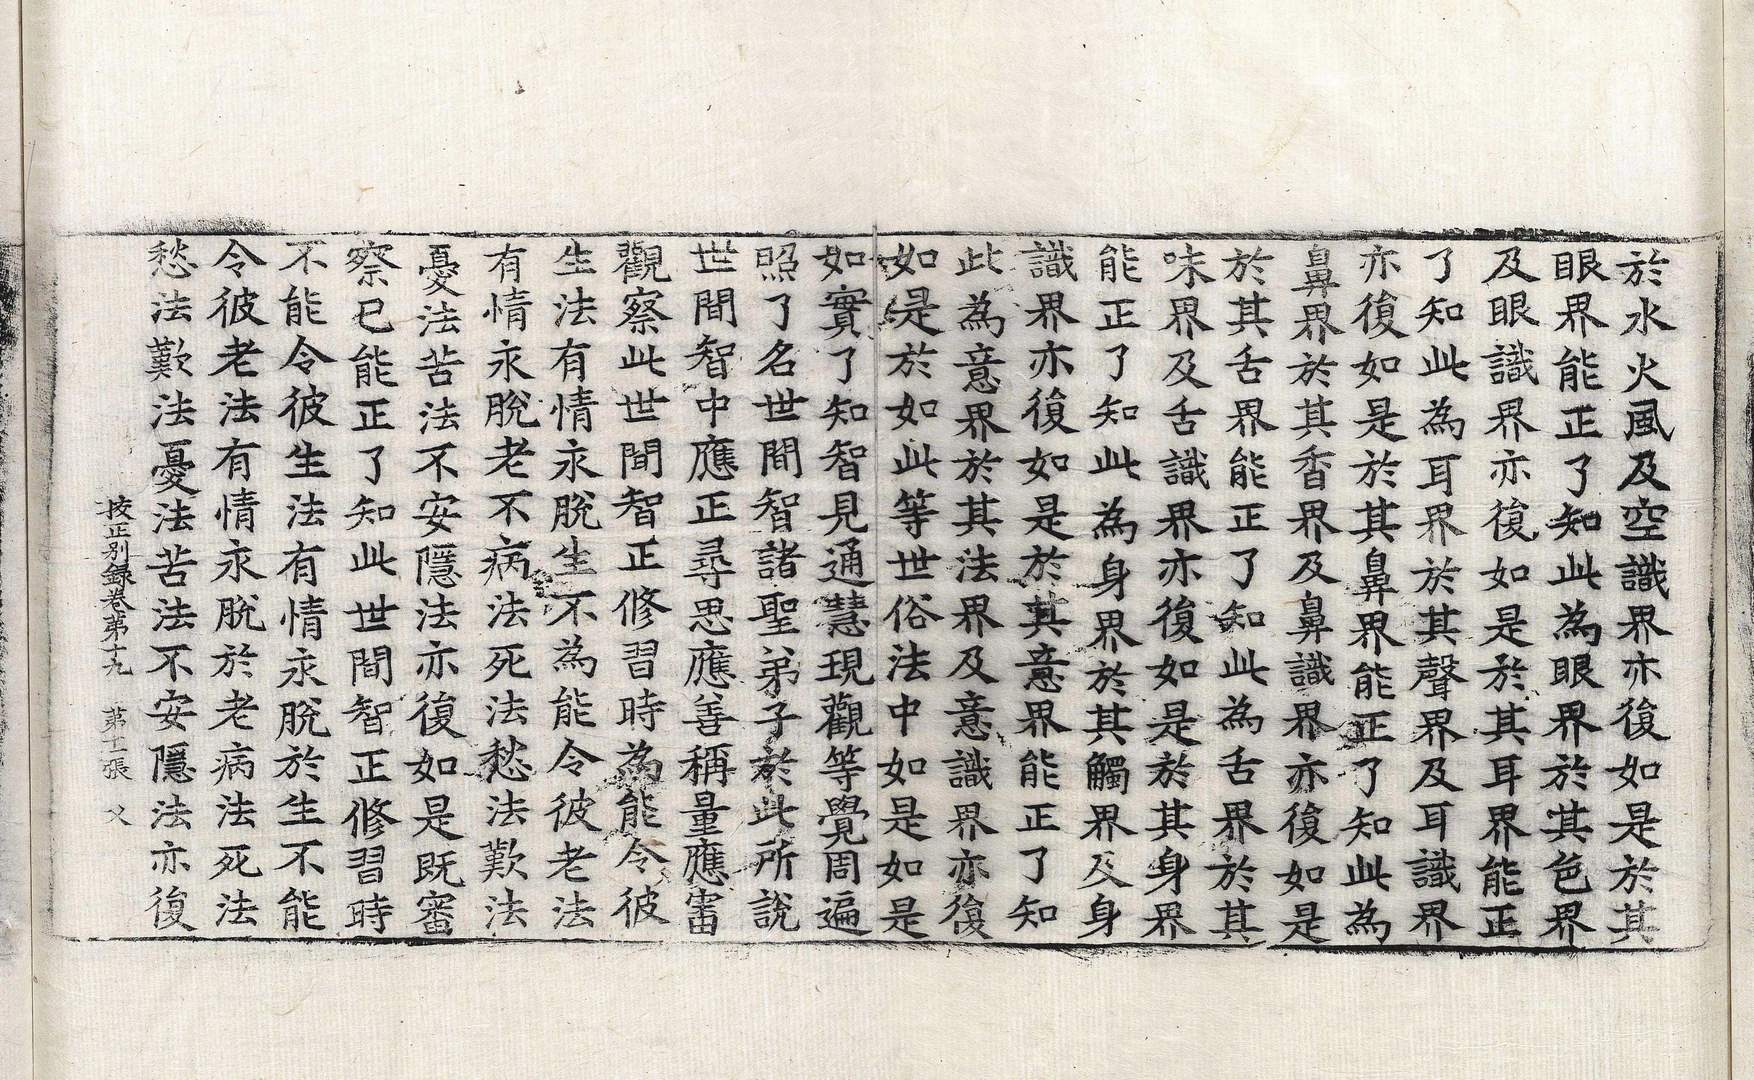 於水火風及空識界亦復如是於其
眼界能正了知此為眼界於其色界
及眼識界亦復如是於其耳界能正
了知此為耳界於其聲界及耳識界
亦復如是於其鼻界能正了知此為
鼻界於其香界及鼻識界亦復如是
於其舌界能正了知此為舌界於其
味界及舌識界亦復如是於其身界
能正了知此為身界於其觸界及身
識界亦復如是於其意界能正了知
此為意界於其法界及意識界亦復
如是於如此等世俗法中如是如是
如實了知智見通慧現觀等覺周遍
照了名世間智諸聖弟子於此所說
世間智中應正尋思應善稱量應審
觀察此世間智正修習時為能令彼
生法有情永脫生不為能令彼老法
有情永脫老不病法死法愁法歎法
憂法苦法不安隱法亦復如是既審
察已能正了知此世間智正修習時
不能令彼生法有情永脫於生不能
令彼老法有情永脫於老病法死法
愁法歎法憂法苦法不安隱法亦復
挍正別録卷第十九 第十二張 乂